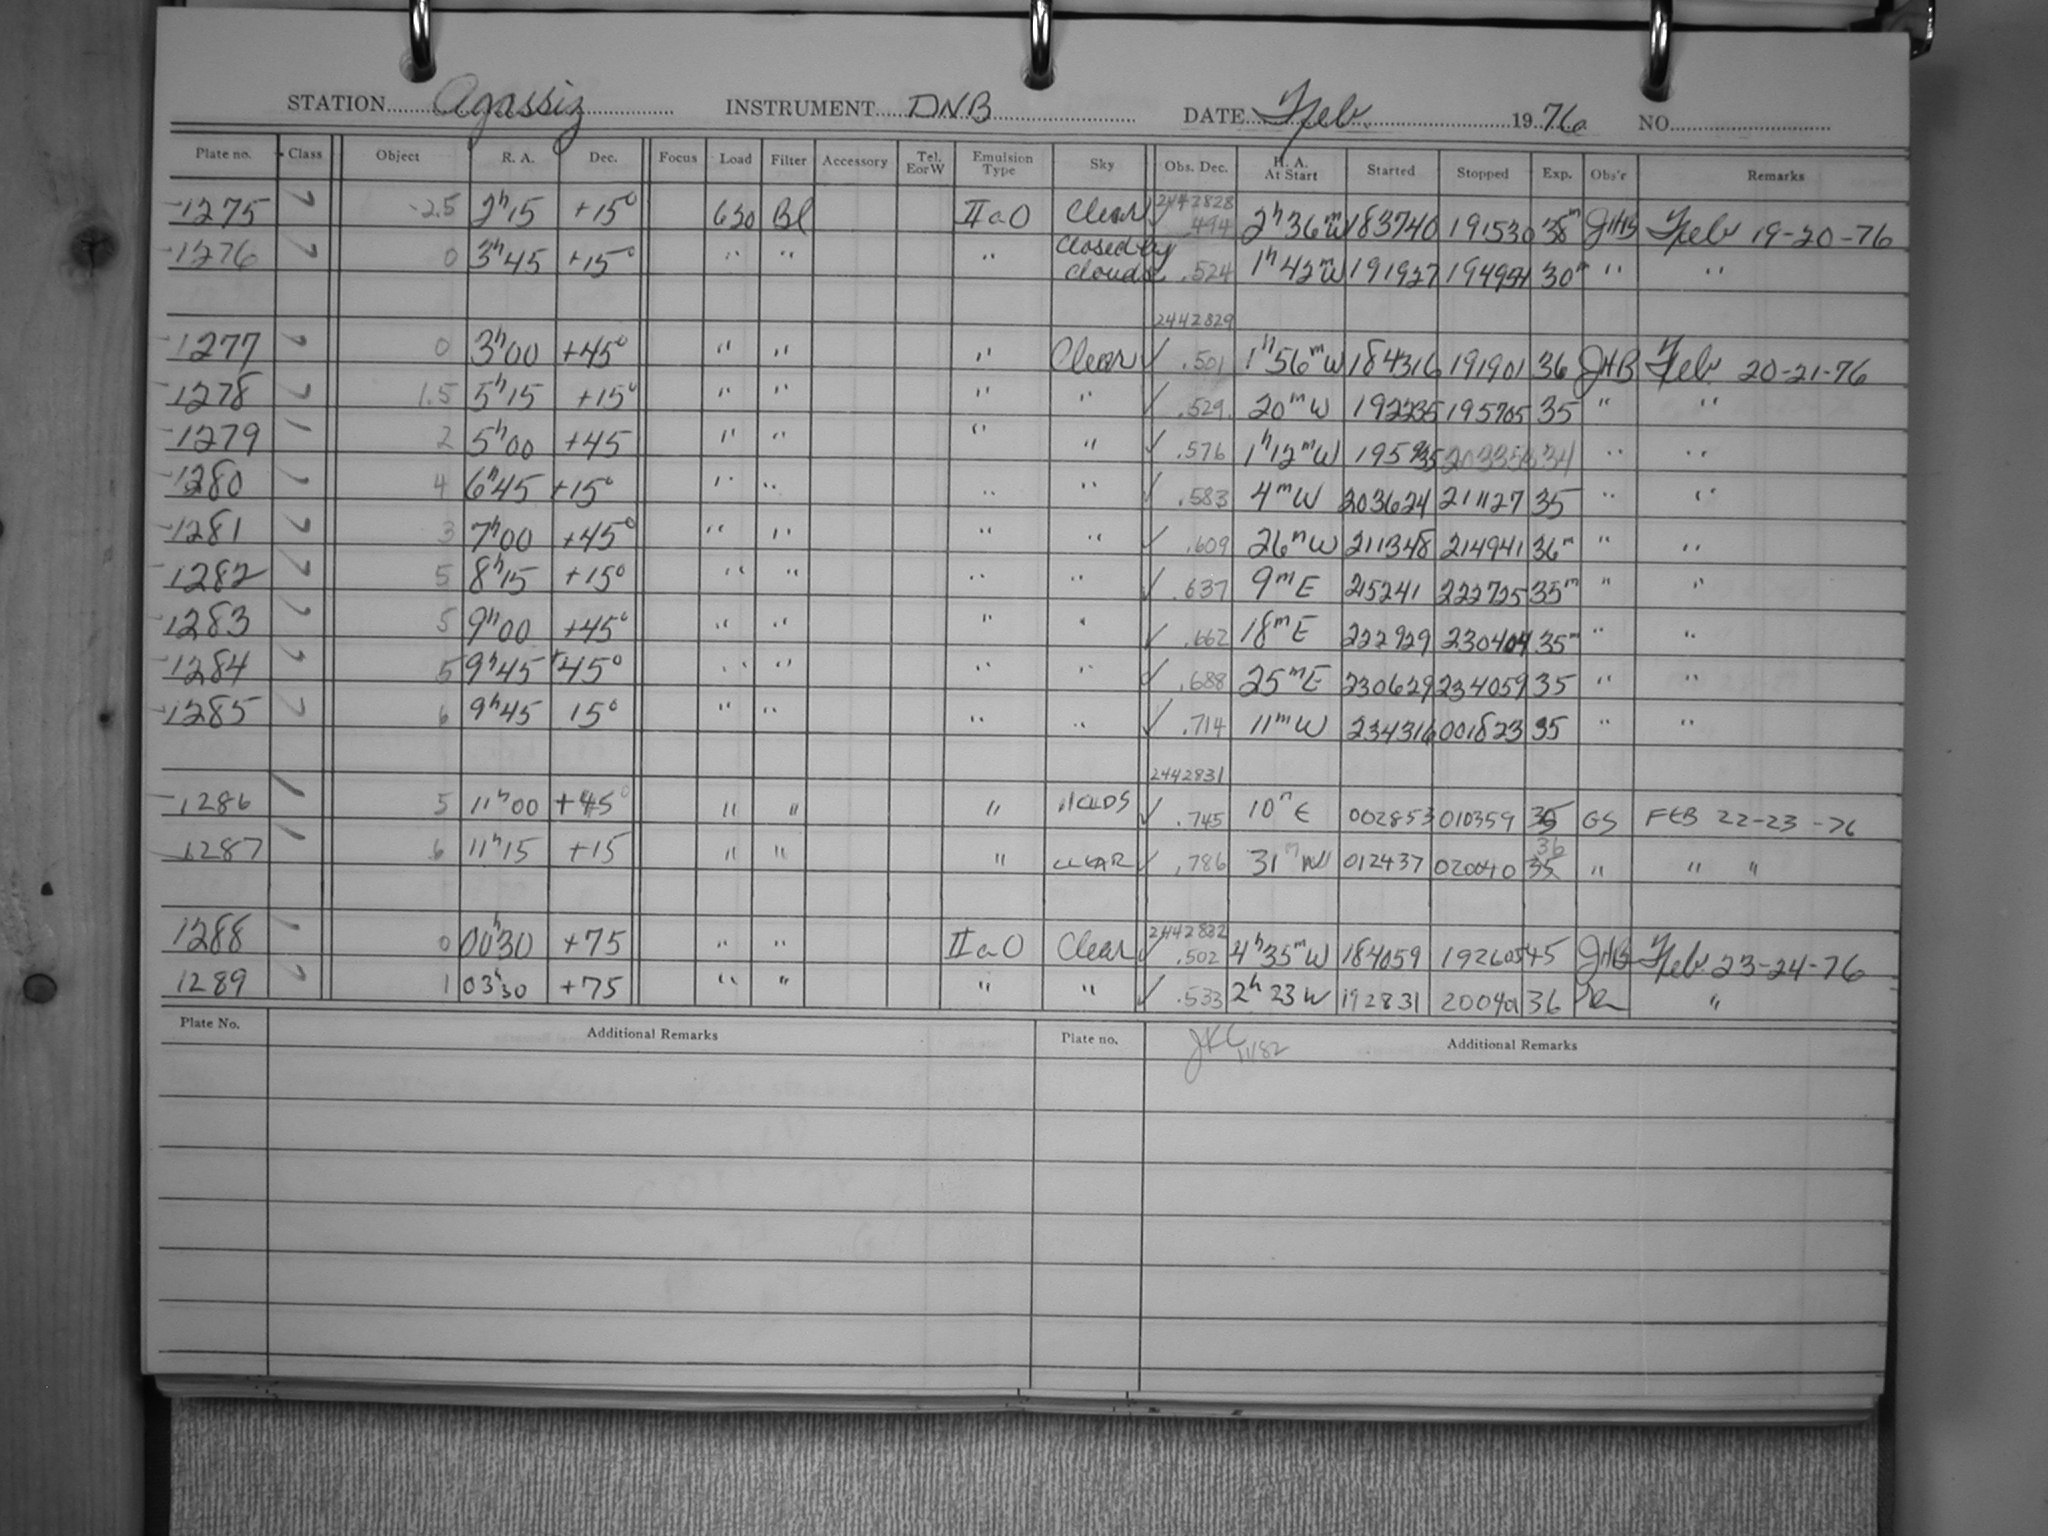 STATION Agassiz INSTRUMENT DNB DATE Feb. 1976 NO.
Plate no. Class Object R. A. Dec. Focus Load Filter Accessory Tel. E or W Emulsion Type Sky Obs. Dec. H. A. At Start Started Stopped Exp. Obs'r Remarks
2442828
1275 7 -2.5 2h15 +15° 630 Bl IIaO Clear ✓ .494 2h36mW 183740 191530 38m JHB Feb 19-20-76
1276 7 0 3h45 +15° " " " Closed by clouds .524 1h42mW 191927 30m " "
2442829
1277 7 0 3h00 +45° " " " Clear ✓ .501 1h56mW 184316 191901 36 JHB Feb. 20-21-76
1278 7 1.5 5h15 +15° " " " " ✓ .529 20mW 192235 195705 35 " "
1279 2 5h00 +45 " " " " ✓ .576 1h12mW 34 " "
1280 4 6h45 +15° " " " " ✓ .583 4mW 203624 211127 35 " "
1281 7 3 7h00 +45° " " " " ✓ .609 26mW 211348 214941 36m " "
1282 7 5 8h15 +15° " " " " ✓ .637 9mE 215241 222725 35m " "
1283 7 5 9h00 +45° " " " " ✓ .662 18mE 222929 230404 35m " "
1284 7 5 9h45 +45° " " " " ✓ .688 25mE 230629 234059 35 " "
1285 7 6 9h45 15° " " " " ✓ .714 11mW 234316 001823 35 " "
2442831
1286 5 11h00 +45° " " " CLDS ✓ .745 10mE 002853 010359 35 GS FEB 22-23-76
36
1287 6 11h15 +15 " " " CLEAR ✓ .786 31mW 012437 020040 35 " " "
2442832
1288 0 00h30 +75 " " IIaO Clear ✓ .502 4h35mW 184059 192605 45 JHB Feb. 23-24-76
1289 7 1 03h30 +75 " " " " ✓ .533 2h23W 192831 36 "
Plate No. Additional Remarks Plate no. JKC 11/82 Additional Remarks